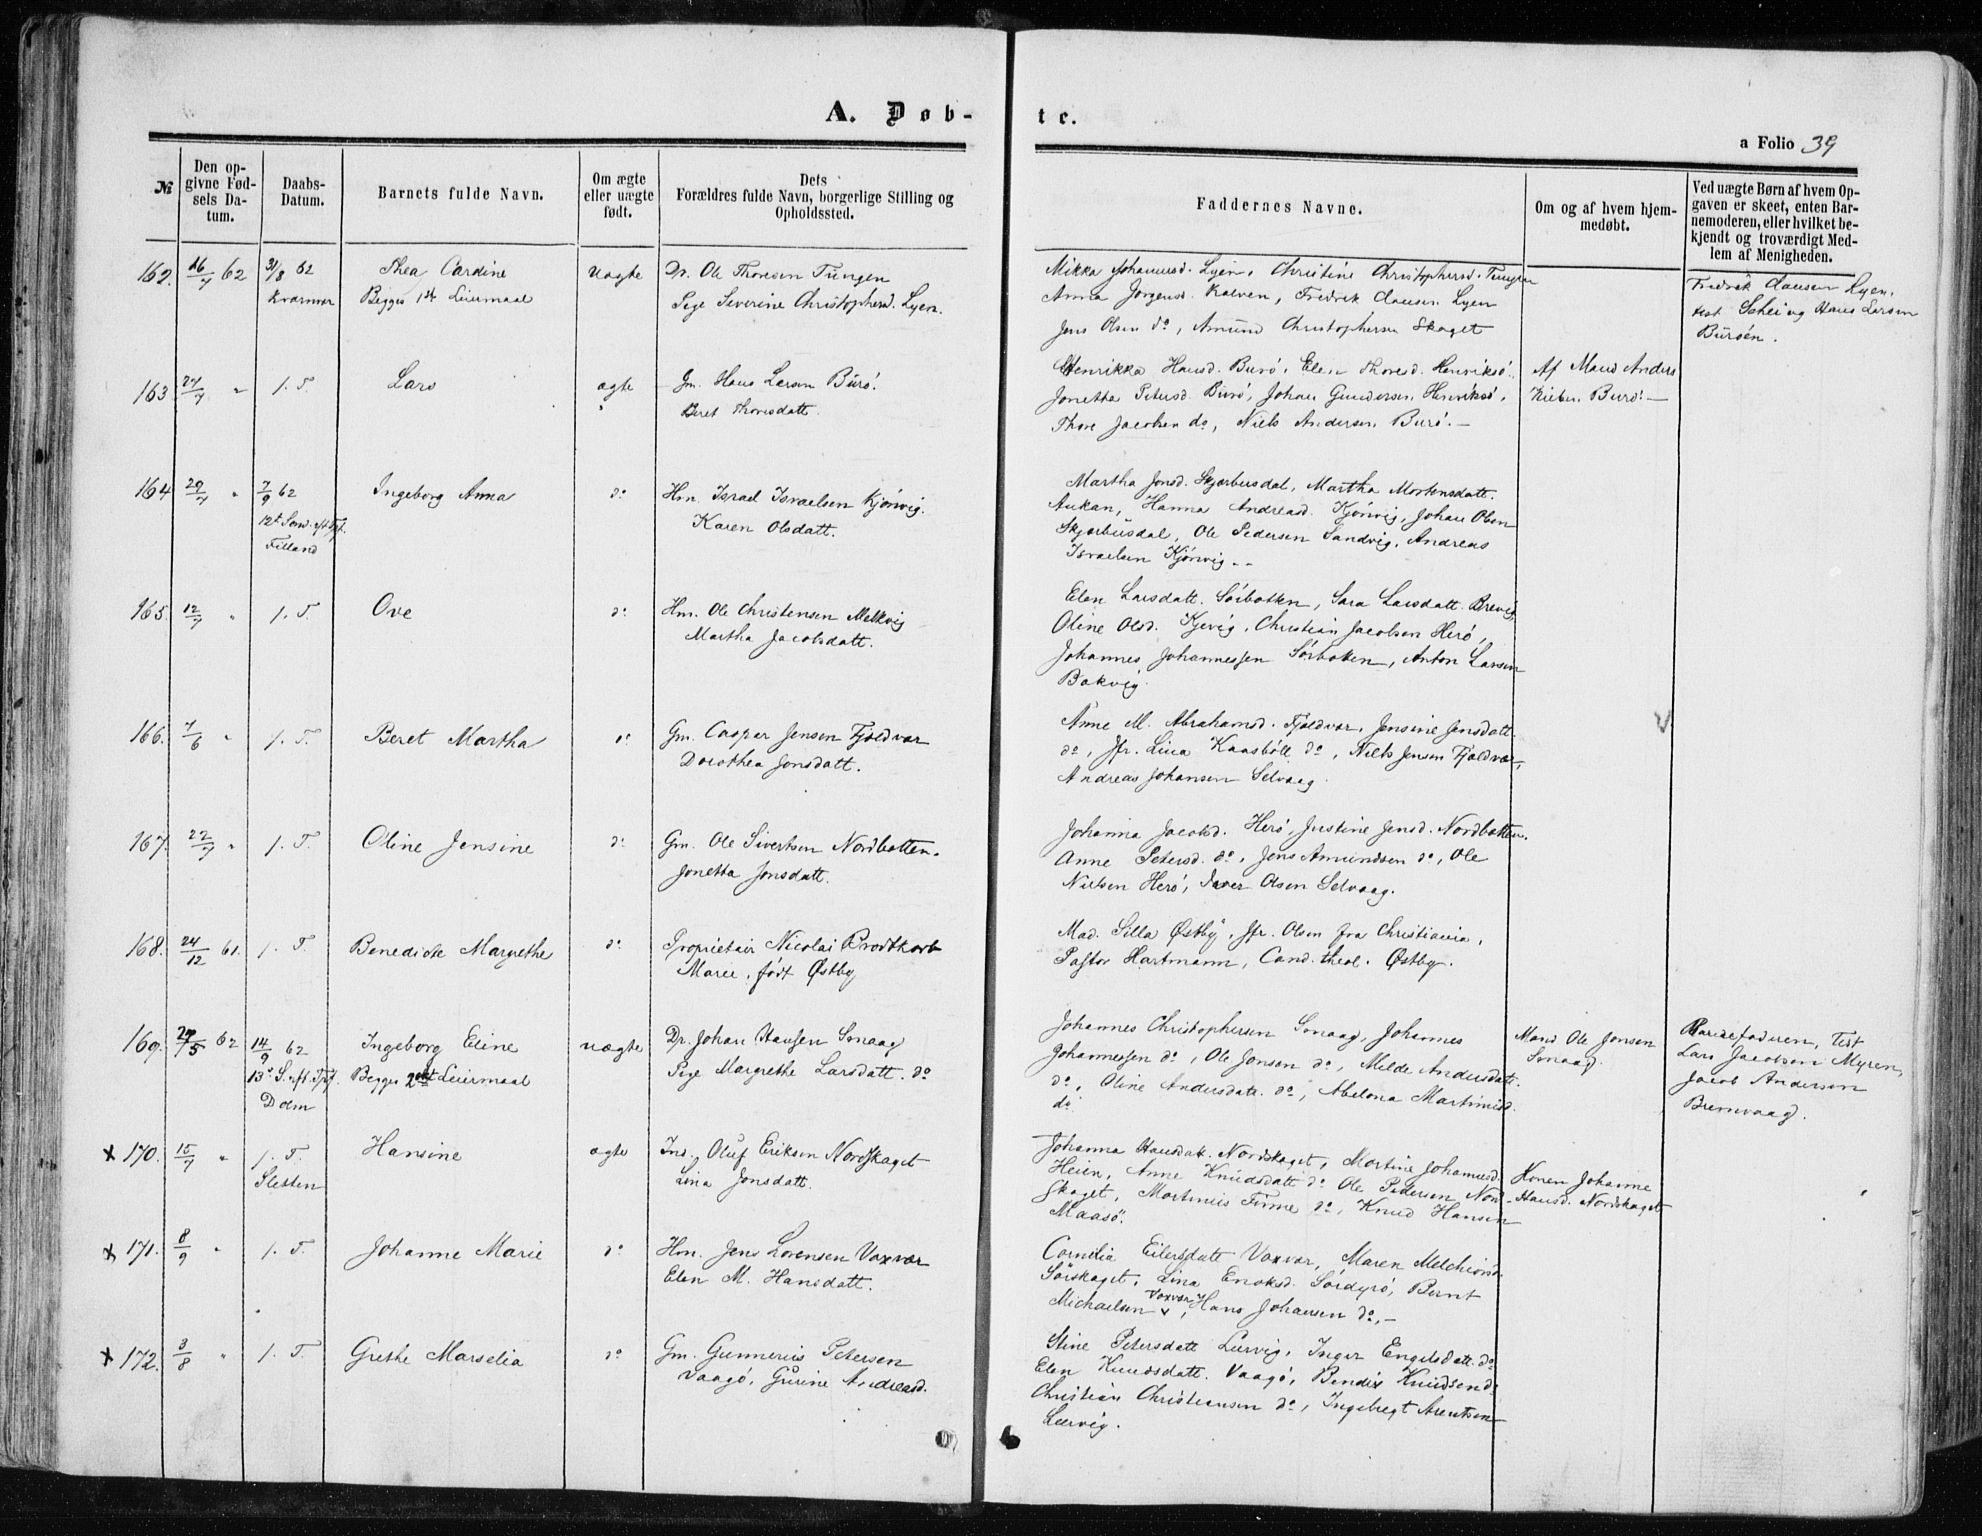 A. Døb-
te.
a Folio 39
№
Den op-
givne Fød-
sels Da-
tum.
Daabs-
Datum.
Barnets fulde Navn.
Om ægte
eller uægte
født.
Dets
Forældres fulde Navn, borgerlige Stilling og
Opholdssted.
Faddernes Navne.
Om og af hvem hjem-
medøbt.
Ved uægte Børn af hvem Op-
gaven er skeet, enten Bar-
nemoderen, eller hvilket be-
kjendt og troværdigt Med-
lem af Menigheden.
162. 16/7 62 31/8 62 Thea Cardine Uægte Dr. Ole Thoresen Tungen
Kvarnvær Begges 1st Leiermaal Pige Severine Christophersd. Lyen.
Mikka Johannesd. Lyen, Christine Christophersd. Tungen
Anna Jørgensd. Kalven, Fredrik Clausen Lyen
Jens Olsen do, Amund Christophersen Skaget
Fredrik Clausen Lyen,
test Schei og Hans Larsen
Burøen.
163 27/7 " 1. T. Lars ægte Gm. Hans Larsen Burø.
Beret Thoresdatt.
Henrikka Hansd. Burø, Elen Thoresd. Henriksø.
Jonetta Petersd. Burø, Johan Gundersen Henriksø,
Thore Jacobsen do, Niels Andersen Burø.—
Af Mand Anders
Burø.—
164 20/7 " 7/9 62 Ingeborg Anna do Hm. Israel Israelsen Kjønvig.
12t Sønd. eft. Tpf. Karen Olsdatt.
Filland
Martha Jonsd. Skjærbusdal, Martha Mortensdatt.
Aukan, Hanna Andreasd. Kjønvig, Johan Olsen
Skjærbusdal, Ole Pedersen Sandvig, Andreas
Israelsen Kjønvig.--
165. 12/7 " 1. T. Ove do Hm. Ole Christensen Melkvig
Martha Jacobsdatt.
Elen Larsdatt. Sørbotten, Sara Larsdatt. Brevig,
Oline Olsd. Kjevig, Christian Jacobsen Herø,
Johannes Johannessen Sørbotten, Anton Larsen
Bakvig.
166. 7/6 " 1. T. Beret Martha do Gm. Casper Jensen Fjeldvær
Dorothea Jonsdatt.
Anne M. Abrahamsd. Fjeldvær, Jensine Jensdatt.
do, Jfr. Lina Kaasbøll do, Niels Jensen Fjeldvær,
Andreas Johansen Selvaag.
167. 22/7 " 1. T. Oline Jensine do Gm. Ole Sivertsen Nordbotten.
Jonetta Jonsdatt.
Johanna Jacobsd. Herø, Justine Jensd. Nordbotten.
Anne Petersd. do, Jens Amundsen do, Ole
Nielsen Herø, Iver Olsen Selvaag.
168. 24/12 61. 1. T. Benedicte Margrethe do Proprietair Nicolai Brodtkorb
Marie, født Østby
Mad. Silla Østby, Jfr. Olsen fra Christiania,
Pastor Hartmann, Cand. theol. Østby.
169. 27/5 62 14/9 62 Ingeborg Eline uægte Dr. Johan Hansen Smaag
13. S. eft. Tpf. Begges 2det Leiermaal Pige Margrethe Larsdatt. do
Dolm
Johannes Christophersen Smaag, Johannes
Johannessen do, Ole Jonsen do, Milde Andersdatt.
do, Oline Andersdatt. do, Abelona Martinusd.
do.
Mand Ole Jonsen
Smaag.
Barnefaderen, Test
Lars Jacobsen Myren,
Jacob Andersen
Bremvaag.
x 170. 15/7 " 1. T. Hansine ægte Ind. Oluf Eriksen Nordskaget
Sletten Lina Jonsdatt.
Johanna Hansdatt. Nordskaget, Martine Johannesd.
Heien, Anne Knudsdatt do Ole Pedersen Nord-
skaget, Martinus Finne do, Knud Hansen
Maasø.
Konen Johanne
Hansd. Nordskaget
x 171. 8/9 " 1. T. Johanne Marie do Hm. Jens Lorensen Vaxvær
Elen M. Hansdatt.
Cornelia Eilersdatt Vaxvær, Maren Melchiorsd.
Sørskaget, Lina Enoksd. Sørdyrø, Bernt
Michaelsen Vaxvær, Hans Johansen do.—
x 172. 3/8 " 1. T. Grethe Marselia do Gm. Gunnerius Petersen
Vaagø, Gurine Andreasd.
Stine Petersdatt Leervig, Inger Engelsdatt. do
Elen Knudsdatt. Vaagø, Bendix Knudsen do
Christian Christiansen do, Ingebregt Arentsen
Leervig.